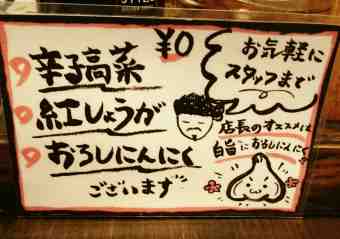 辛子高菜
¥0
紅しょうが
おろしにんにく
ございます
お気軽に
スタッフまで
店長のオススメは
白旨におろしにんにく